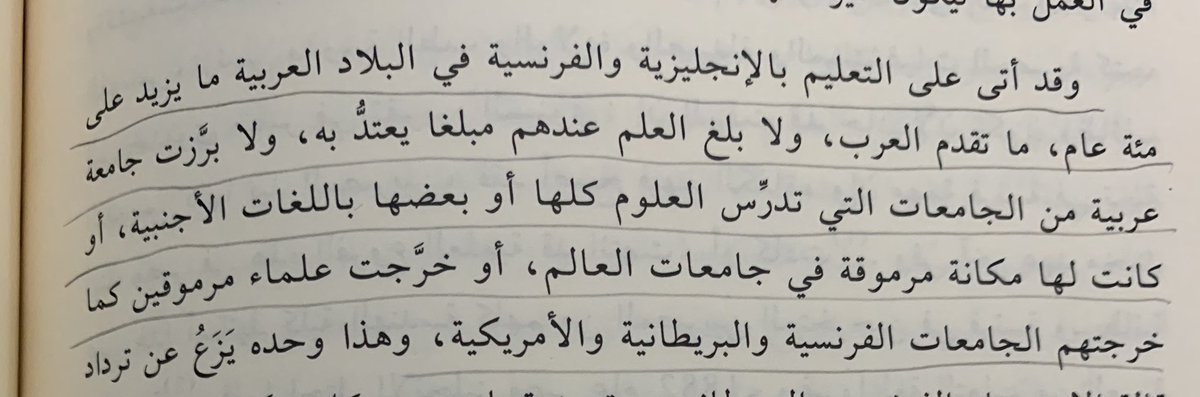 في العمل بها
وقد أتى على التعليم بالإنجليزية والفرنسية في البلاد العربية ما يزيد على
مئة عام، ما تقدم العرب، ولا بلغ العلم عندهم مبلغا يعتدُّ به، ولا برَّزت جامعة
عربية من الجامعات التي تدرِّس العلوم كلها أو بعضها باللغات الأجنبية، أو
كانت لها مكانة مرموقة في جامعات العالم، أو خرَّجت علماء مرموقين كما
خرجتهم الجامعات الفرنسية والبريطانية والأمريكية، وهذا وحده يَزَعُ عن ترداد